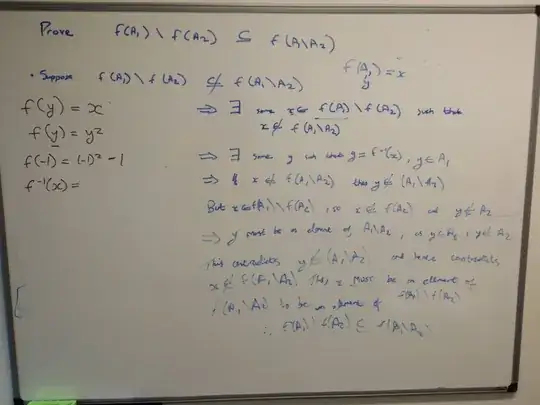 Prove f(A₁) \ f(A₂) ⊆ f(A₁\A₂)
f(A₁) = x
y
• Suppose f(A₁) \ f(A₂) ⊄ f(A₁\A₂)
f(y) = x
f(y) = y²
f(-1) = (-1)² - 1
f⁻¹(x) =
⇒ ∃ some x∈ f(A₁) \ f(A₂) such that
x ∉ f(A₁\A₂)
⇒ ∃ some y such that y = f⁻¹(x), y ∈ A₁
⇒ If x ∉ f(A₁\A₂) then y ∉ (A₁\A₂)
But x ∈ f(A₁) \ f(A₂), so x ∉ f(A₂) and y ∉ A₂
⇒ y must be an element of A₁\A₂, as y ∈ A₁, y ∉ A₂
This contradicts y ∉ (A₁\A₂) and hence contradicts
x ∉ f(A₁\A₂). Thus, x must be an element of
f(A₁\A₂) to be an element of f(A₁) \ f(A₂)
∴ f(A₁) \ f(A₂) ⊆ f(A₁\A₂)